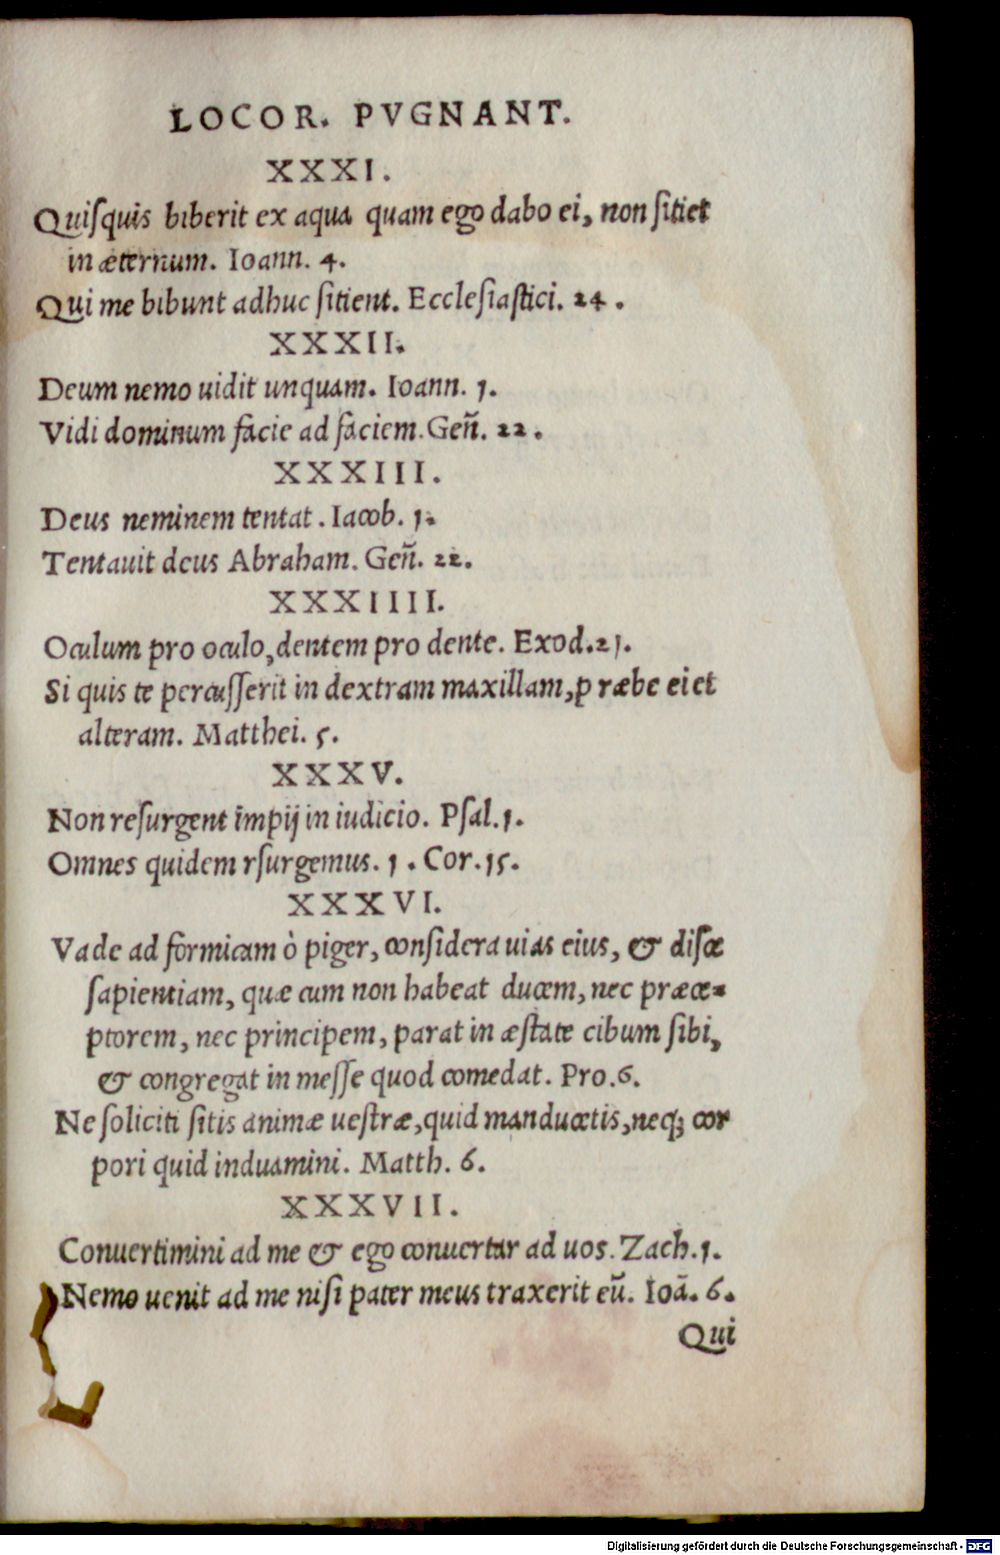 LOCOR. PVGNANT.
XXXI.
Quiſquis biberit ex aqua quam ego dabo ei, non ſitiet
in æternum. Ioann. 4.
Qui me bibunt adhuc ſitient. Eccleſiaſtici. 24.
XXXII.
Deum nemo uidit unquam. Ioann. 1.
Vidi dominum facie ad faciem. Geñ. 22.
XXXIII.
Deus neminem tentat. Iacob. 1.
Tentauit deus Abraham. Geñ. 22.
XXXIIII.
Oculum pro oculo, dentem pro dente. Exod. 21.
Si quis te percuſſerit in dextram maxillam, præbe ei et
alteram. Matthei. 5.
XXXV.
Non reſurgent impij in iudicio. Pſal. 1.
Omnes quidem rſurgemus. 1. Cor. 15.
XXXVI.
Vade ad formicam ò piger, conſidera uias eius, & diſce
ſapientiam, quæ cum non habeat ducem, nec præce-
ptorem, nec principem, parat in æſtate cibum ſibi,
& congregat in meſſe quod comedat. Pro. 6.
Ne ſoliciti ſitis animæ ueſtræ, quid manducetis, neq; cor
pori quid induamini. Matth. 6.
XXXVII.
Conuertimini ad me & ego conuertar ad uos. Zach. 1.
Nemo uenit ad me niſi pater meus traxerit eũ. Ioã. 6.
Qui
Digitalisierung gefördert durch die Deutsche Forschungsgemeinschaft - DFG